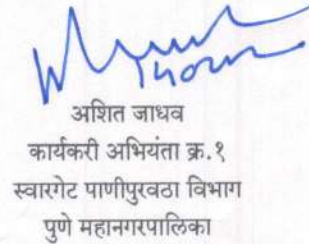 अशित जाधव
कार्यकरी अभियंता क्र.१
स्वारगेट पाणीपुरवठा विभाग
पुणे महानगरपालिका